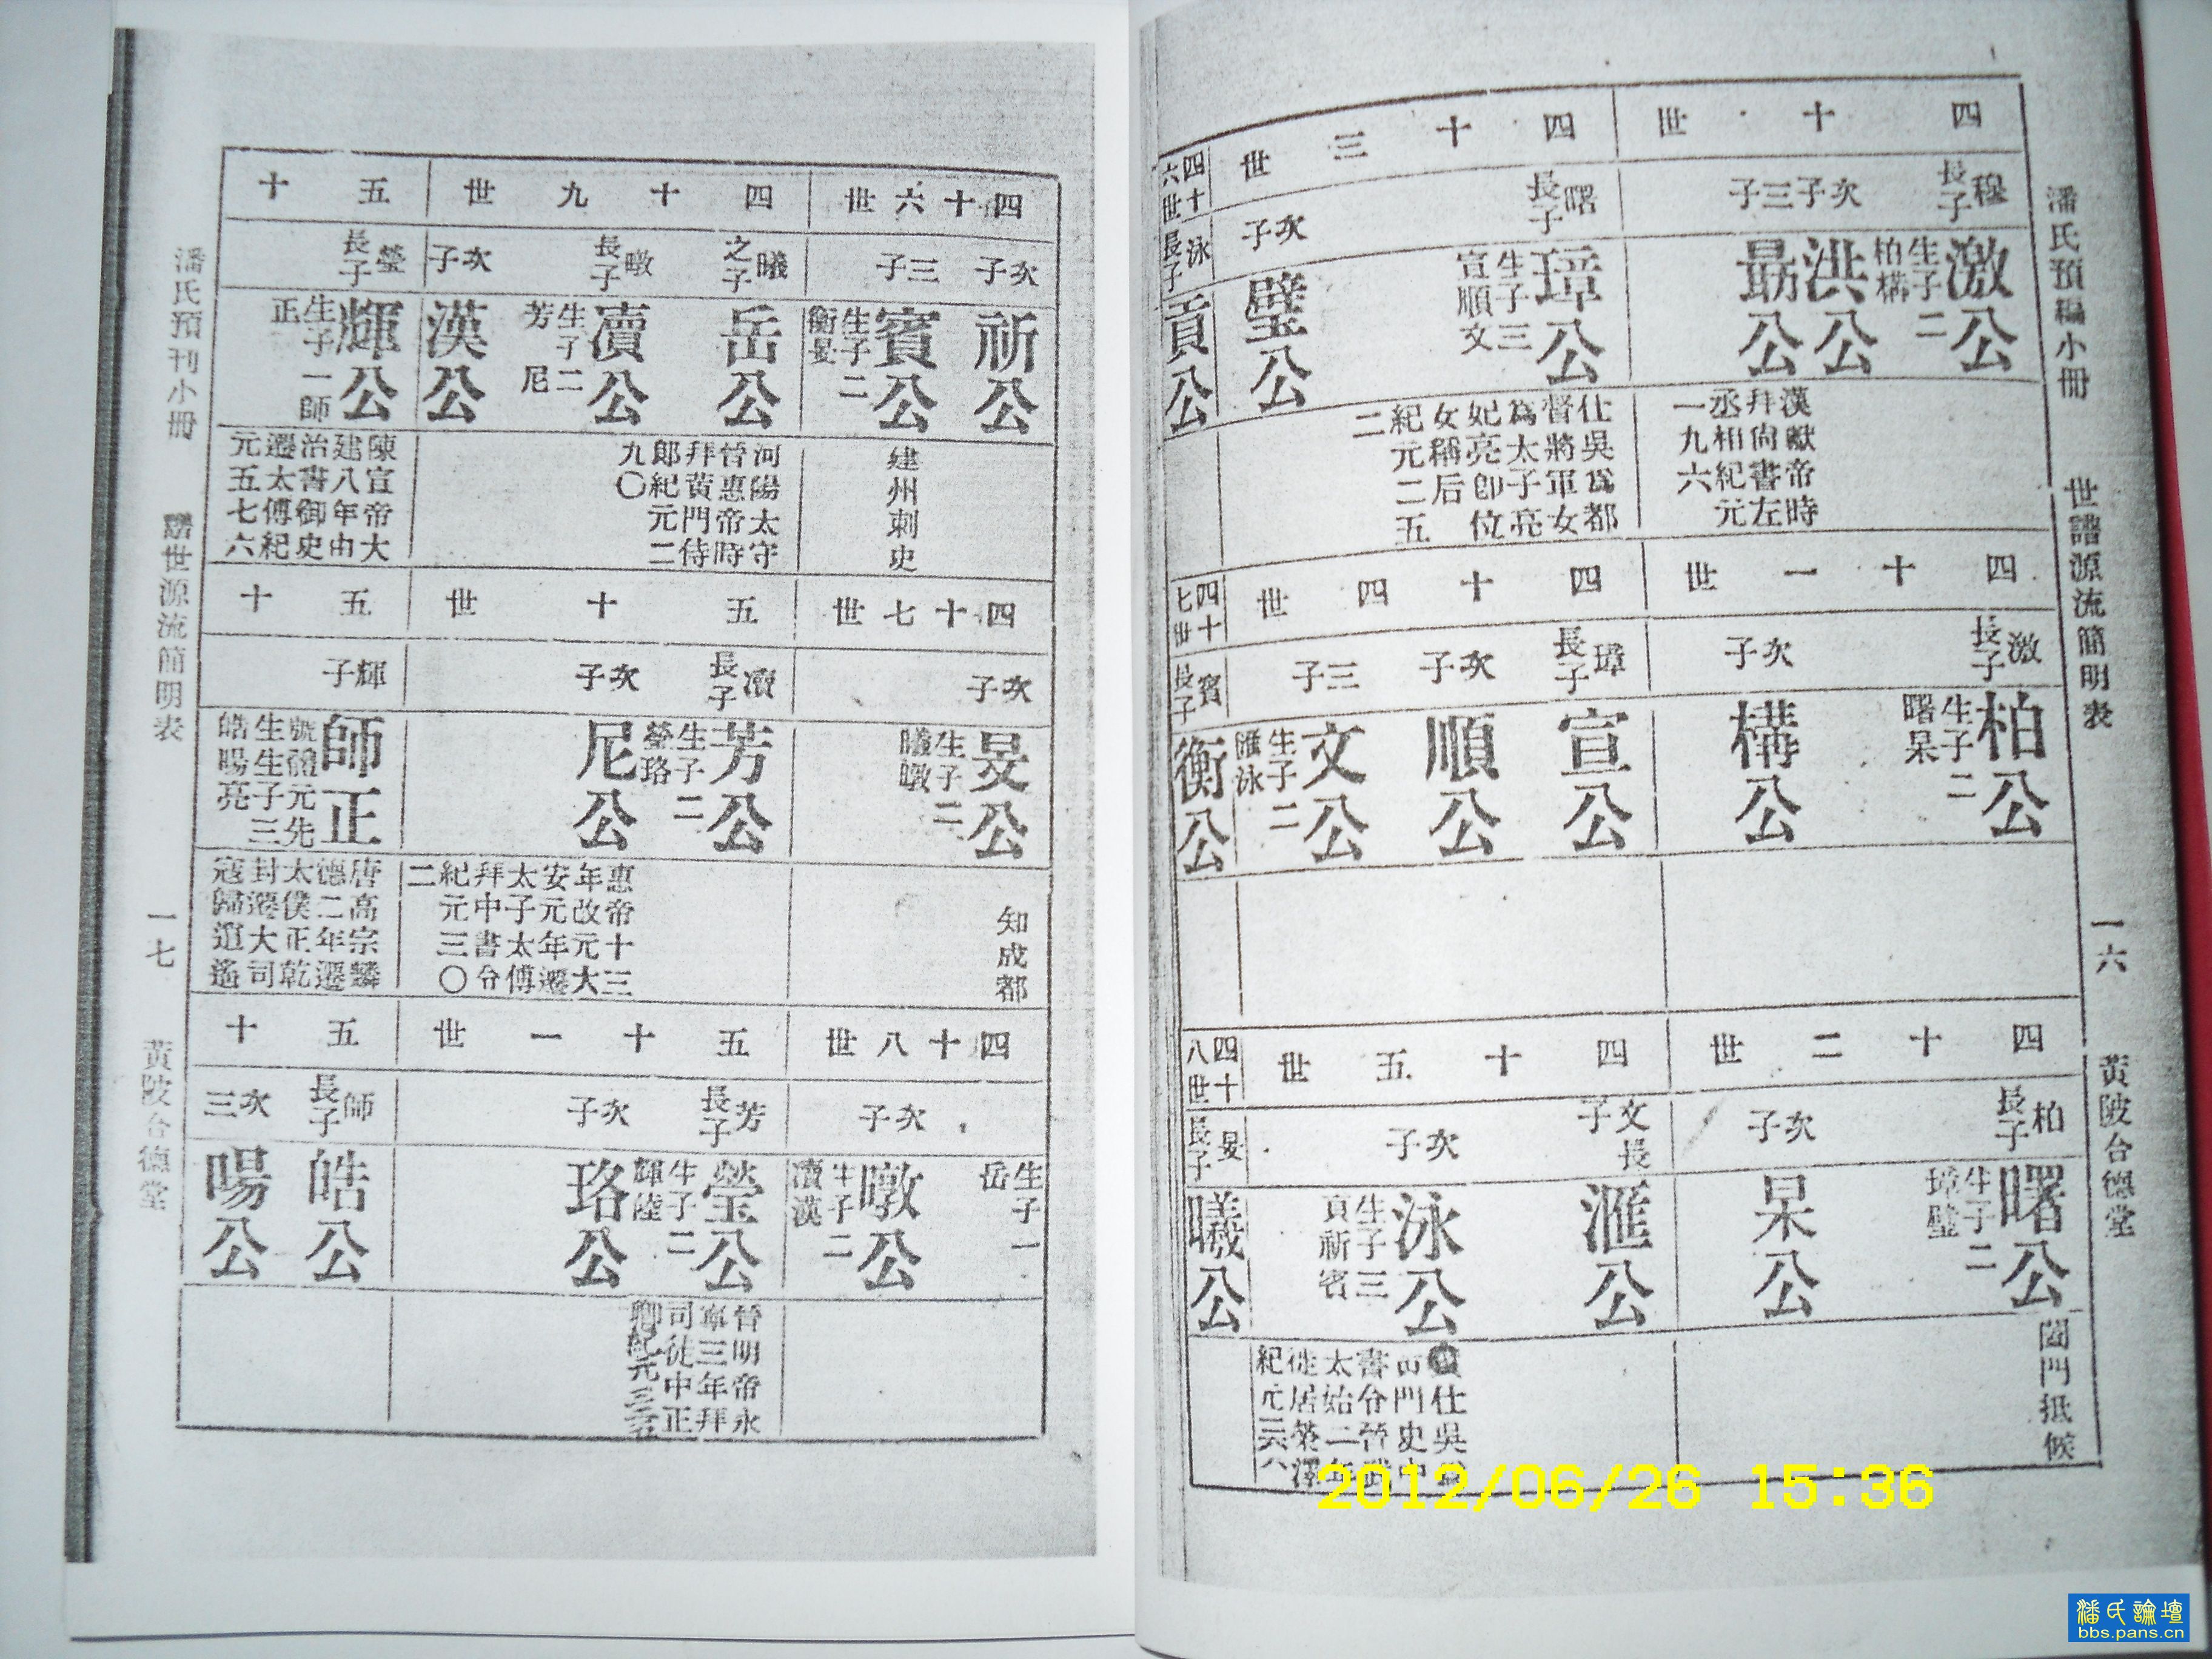 潘氏預編小冊 世譜源流簡明表 一六 黃陂台德堂
四十世
穆長子
激公
生子二
柏構
次子三子
洪公
勗公
漢獻帝時
拜尚書左
丞相紀元
一九六
四十一世
激長子
柏公
生子二
曙杲
次子
構公
四十二世
柏長子
曙公
生子二
璋璧
閤門抵候
次子
杲公
四十三世
曙長子
璋公
生子三
宣順文
仕吳為都
督將軍女
為太子亮
妃亮卽位
女稱后
紀元二五
二
次子
璧公
四十四世
璋長子
宣公
次子
順公
三子
文公
生子二
滙泳
四十五世
文長子
滙公
次子
泳公
生子三
貢祈賓
仕吳
門史中
書令晉
太始二年
徙居滎澤
紀元二六六
四十六世
泳長子
貢公
四十七世
賓長子
衡公
四十八世
旻長子
曦公
四十六世
次子
祈公
三子
賓公
生子二
衡旻
建州刺史
四十七世
次子
旻公
生子二
曦暾
知成都
四十八世
生子一
岳
次子
暾公
生子二
瀆漢
四十九世
曦之子
岳公
河陽太守
晉惠帝時
拜黃門侍
郎紀元二
九〇
暾長子
瀆公
生子二
芳尼
次子
漢公
五十世
瀆長子
芳公
生子二
瑩珞
次子
尼公
惠帝十三
年改元大
安元年遷
太子太傅
拜中書令
紀元三〇
二
五十一世
芳長子
瑩公
生子二
輝陸
次子
珞公
晉明帝永
寧三年拜
司徒中正
卿紀元三
五十
瑩長子
輝公
生子一師
正
陳宣帝大
建八年由
治書御史
遷太傅紀
元五七六
五十
輝子
師正
號體元先
生生子三
皓暘亮
唐高宗麟
德二年遷
太僕正乾
封遷大司
寇歸逍遙
五十
師長子
皓公
次三
暘公
潘氏預刊小冊 歷世源流簡明表 一七 黃陂台德堂
2012/06/26 15:36
潘氏論壇
bbs.pans.cn